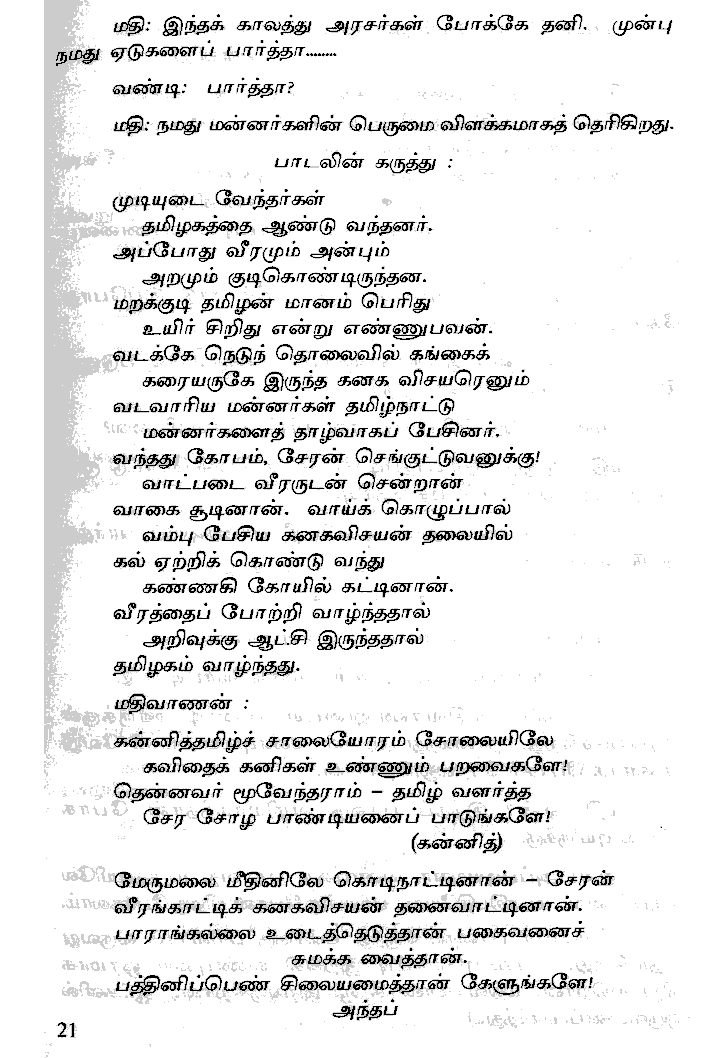 மதி: இந்தக் காலத்து அரசர்கள் போக்கே தனி. முன்பு
நமது ஏடுகளைப் பார்த்தா........
வண்டி: பார்த்தா?
மதி: நமது மன்னர்களின் பெருமை விளக்கமாகத் தெரிகிறது.
பாடலின் கருத்து :
முடியுடை வேந்தர்கள்
தமிழகத்தை ஆண்டு வந்தனர்.
அப்போது வீரமும் அன்பும்
அறமும் குடிகொண்டிருந்தன.
மறக்குடி தமிழன் மானம் பெரிது
உயிர் சிறிது என்று எண்ணுபவன்.
வடக்கே நெடுந் தொலைவில் கங்கைக்
கரையருகே இருந்த கனக விசயரெனும்
வடவாரிய மன்னர்கள் தமிழ்நாட்டு
மன்னர்களைத் தாழ்வாகப் பேசினர்.
வந்தது கோபம், சேரன் செங்குட்டுவனுக்கு!
வாட்படை வீரருடன் சென்றான்
வாகை சூடினான். வாய்க் கொழுப்பால்
வம்பு பேசிய கனகவிசயன் தலையில்
கல் ஏற்றிக் கொண்டு வந்து
கண்ணகி கோயில் கட்டினான்.
வீரத்தைப் போற்றி வாழ்ந்ததால்
அறிவுக்கு ஆட்சி இருந்ததால்
தமிழகம் வாழ்ந்தது.
மதிவாணன் :
கன்னித்தமிழ்ச் சாலையோரம் சோலையிலே
கவிதைக் கனிகள் உண்ணும் பறவைகளே!
தென்னவர் மூவேந்தராம் – தமிழ் வளர்த்த
சேர சோழ பாண்டியனைப் பாடுங்களே!
(கன்னித்)
மேருமலை மீதினிலே கொடிநாட்டினான் – சேரன்
வீரங்காட்டிக் கனகவிசயன் தனைவாட்டினான்.
பாராங்கல்லை உடைத்தெடுத்தான் பகைவனைச்
சுமக்க வைத்தான்.
பத்தினிப்பெண் சிலையமைத்தான் கேளுங்களே!
அந்தப்
21